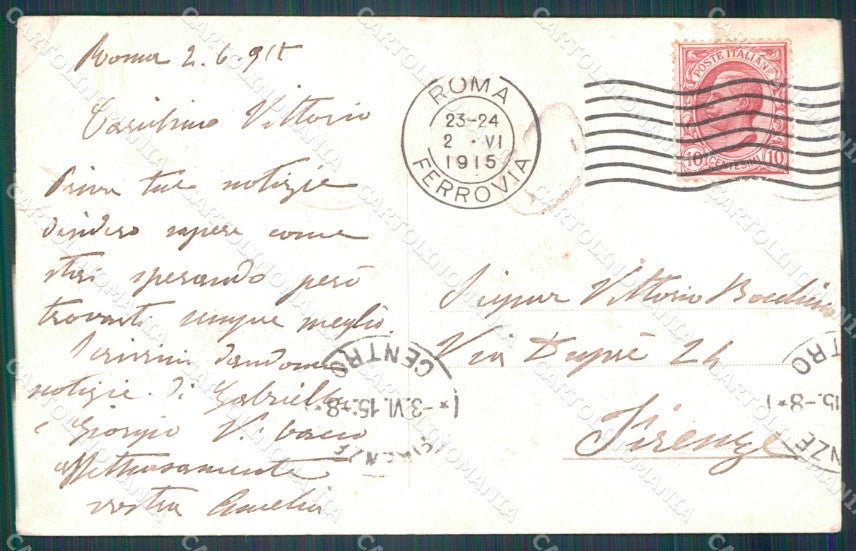 Roma 2.6.915
Carissimo Vittorio
Priva tue notizie
desidero sapere come
stai sperando però
trovarti sempre meglio.
Scrivimi dandomi
notizie di Gabriella
e Giorgio Vi bacio
affettuosamente
vostra Amelia
ROMA
23-24
2 · VI
1915
FERROVIA
POSTE ITALIANE
10 CENTESIMI 10
Signor Vittorio
Via Duprè 24
Firenze
FIRENZE
* -3.VI.15.-8 *
CENTRO
NZE
15.-8 *
TRO
CARTOLINOMANIA